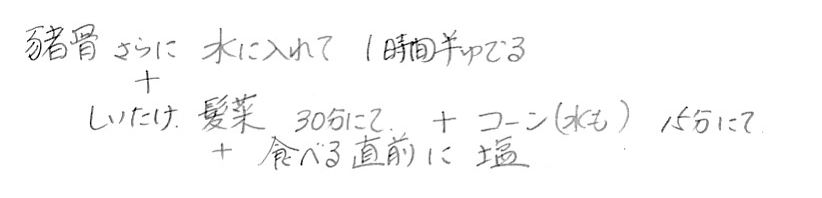 豬骨 さらに 水に入れて 1時間半ゆでる
+
しいたけ. 髪菜 30分にて. + コーン(水も) 15分にて.
+ 食べる直前に 塩